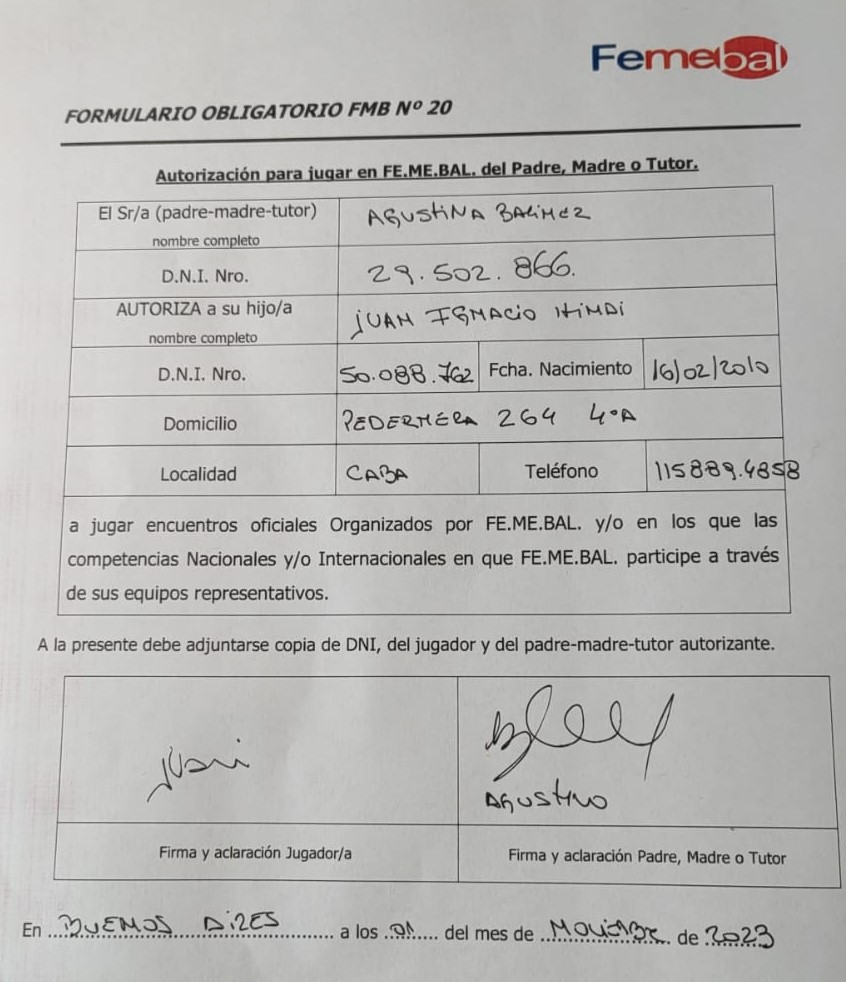 Femebal
FORMULARIO OBLIGATORIO FMB Nº 20
Autorización para jugar en FE.ME.BAL. del Padre, Madre o Tutor.
El Sr/a (padre-madre-tutor) AGUSTINA
nombre completo
D.N.I. Nro. 29.502.866.
AUTORIZA a su hijo/a JUAN IGNACIO
nombre completo
D.N.I. Nro. 50.088.762 Fcha. Nacimiento 16/02/2010
Domicilio PEDERNERA 264 4°A
Localidad CABA Teléfono 115889.4858
a jugar encuentros oficiales Organizados por FE.ME.BAL. y/o en los que las
competencias Nacionales y/o Internacionales en que FE.ME.BAL. participe a través
de sus equipos representativos.
A la presente debe adjuntarse copia de DNI, del jugador y del padre-madre-tutor autorizante.
Juani
Firma y aclaración Jugador/a Firma y aclaración Padre, Madre o Tutor
En BUENOS AIRES a los 01 del mes de NOVIEMBRE de 2023